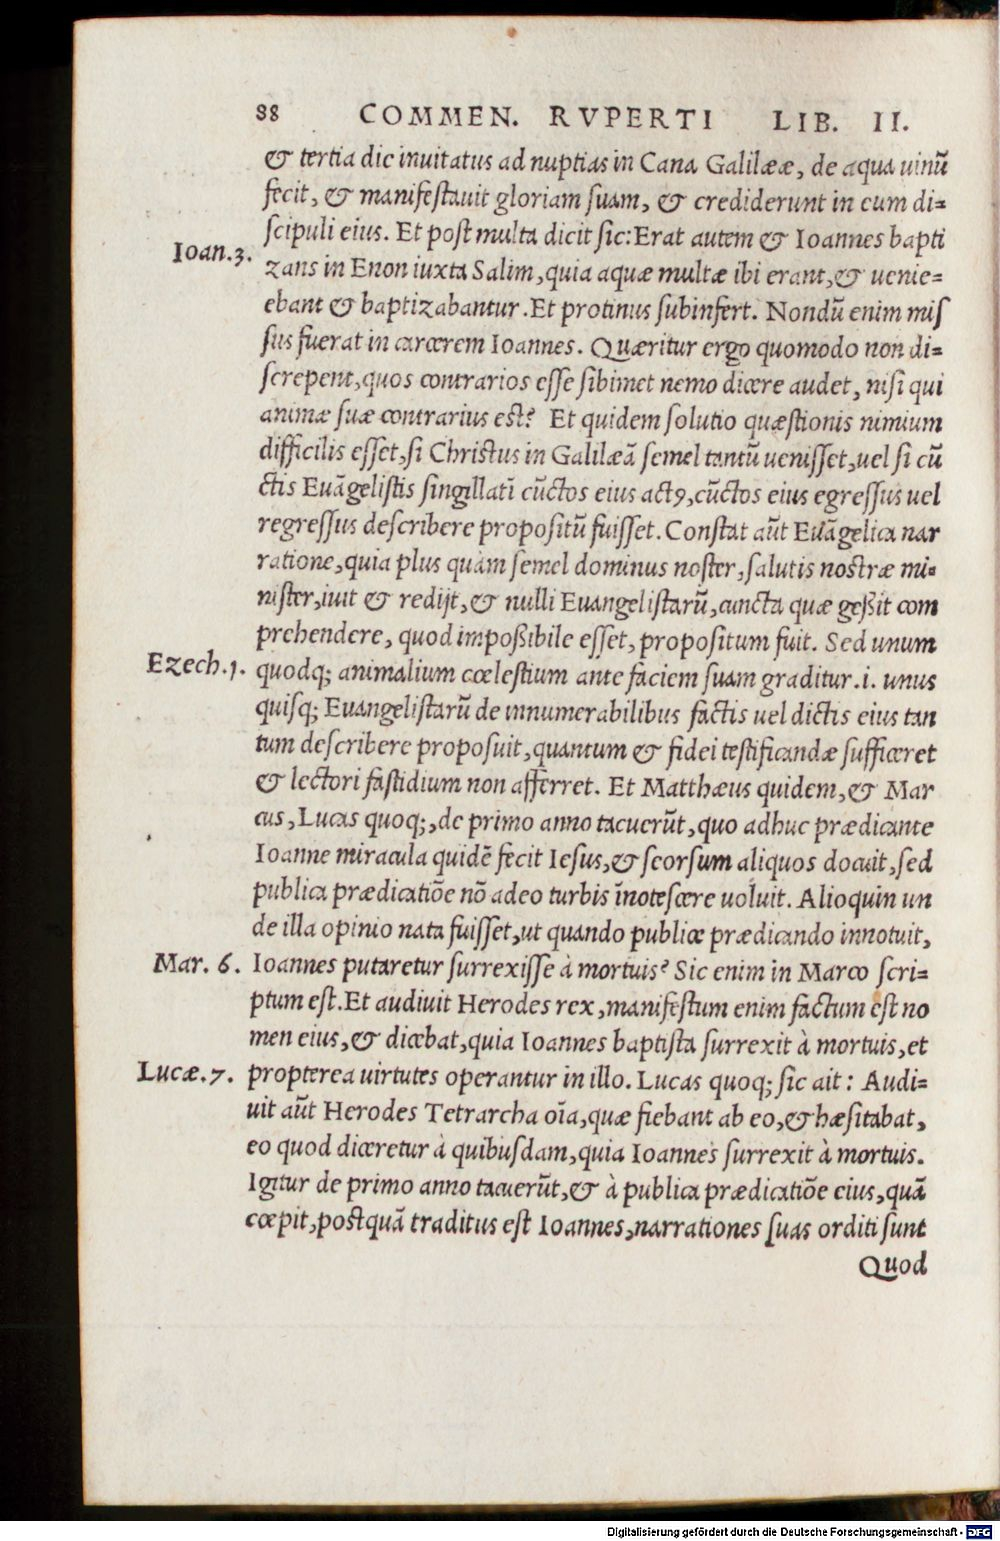 88 COMMEN. RVPERTI LIB. II.
& tertia die inuitatus ad nuptias in Cana Galilææ, de aqua uinũ
fecit, & manifestauit gloriam suam, & crediderunt in eum di=
scipuli eius. Et post multa dicit sic: Erat autem & Ioannes bapti
Ioan.3.
zans in Enon iuxta Salim, quia aquæ multæ ibi erant, & uenie=
ebant & baptizabantur. Et protinus subinfert. Nondũ enim mis
sus fuerat in carcerem Ioannes. Quæritur ergo quomodo non di=
screpent, quos contrarios esse sibimet nemo dicere audet, nisi qui
animæ suæ contrarius est? Et quidem solutio quæstionis nimium
difficilis esset, si Christus in Galilæã semel tantũ uenisset, uel si cũ
ctis Euãgelistis singillatĩ cũctos eius actꝰ, cũctos eius egressus uel
regressus describere propositũ fuisset. Constat aũt Euãgelica nar
ratione, quia plus quàm semel dominus noster, salutis nostræ mi=
nister, iuit & redijt, & nulli Euangelistarũ, cuncta quæ geßit com
prehendere, quod impoßibile esset, propositum fuit. Sed unum
Ezech.1.
quodq; animalium cœlestium ante faciem suam graditur .i. unus
quisq; Euangelistarũ de innumerabilibus factis uel dictis eius tan
tum describere proposuit, quantum & fidei testificandæ sufficeret
& lectori fastidium non afferret. Et Matthæus quidem, & Mar
cus, Lucas quoq;, de primo anno tacuerũt, quo adhuc prædicante
Ioanne miracula quidẽ fecit Iesus, & seorsum aliquos docuit, sed
publica prædicatiõe nõ adeo turbis ĩnotescere uoluit. Alioquin un
de illa opinio nata fuisset, ut quando publice prædicando innotuit,
Mar. 6.
Ioannes putaretur surrexisse à mortuis? Sic enim in Marco scri=
ptum est. Et audiuit Herodes rex, manifestum enim factum est no
men eius, & dicebat, quia Ioannes baptista surrexit à mortuis, et
Lucæ.7.
propterea uirtutes operantur in illo. Lucas quoq; sic ait: Audi=
uit aũt Herodes Tetrarcha oĩa, quæ fiebant ab eo, & hæsitabat,
eo quod diceretur à quibusdam, quia Ioannes surrexit à mortuis.
Igitur de primo anno tacuerũt, & à publica prædicatiõe eius, quã
cœpit, postquã traditus est Ioannes, narrationes suas orditi sunt
Quod
Digitalisierung gefördert durch die Deutsche Forschungsgemeinschaft - DFG